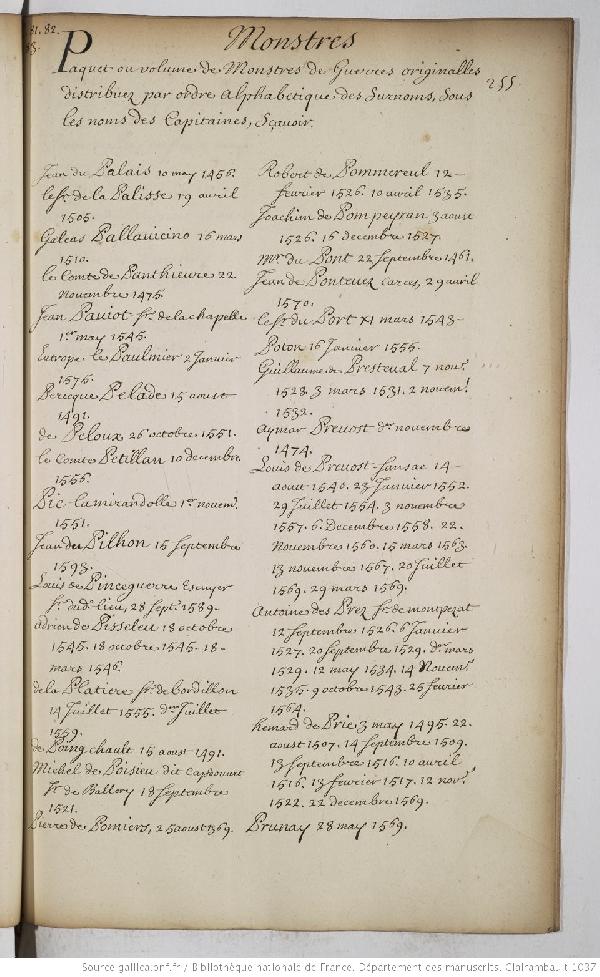 81. 82.
83.
Monstres
255
Paquet ou volume de Monstres de Guerres originalles
distribuez par ordre alphabetique des Surnoms, Sous
les noms des Capitaines, Sçavoir.
Jean du Palais 10 may 1456.
le Sr. de la Palisse 19 avril
1505.
Galeas Pallavicino 16 mars
1510.
le Comte de Panthieure 22
Novembre 1475.
Jean Paviot Sr. de la chapelle
1er. may 1545.
Eutrope le Paulmier 2 Janvier
1576.
Perceque Pelade 15 aoust
1491.
de Peloux 26 octobre 1551.
le Comte Petillan 10 decembre
1556.
Pic-lamirandolle 1er. novem.
1551.
Jean du Pilhon 15 Septembre
1593.
Louis de Pinceguerre Escuyer
Sr. dud. lieu, 28 Sept. 1589.
adrien de Pisseleu 18 octobre
1545. 18 octobre 1545. 18-
mars 1546.
de la Platiere Sr. de bordillon
14 Juillet 1555. der. Juillet
1559.
de Poing chault 15 aoust 1491.
Michel de Poisieu dit
Sr. de 18 Septembre
1521.
Pierre de Pomiers, 25 aoust 1369.
Robert de Pommereul 12-
fevrier 1526. 10 avril 1535.
Joachim de Pompeyran 3 aoust
1526. 15 decembre 1527.
Mr. du Pont 22 Septembre 1461.
Jean de Pontevez Carces, 29 avril
1570.
le Sr. du Port XI mars 1543-
Poton 16 Janvier 1555.
Guillaume de Presteval 7 nov.
1523. 3 mars 1531. 2 novem.
1532.
Aymar Prevost der. novembre
1474.
Louis de Prevost-Sansac 14-
aoust 1546. 23 Janvier 1552.
29 Juillet 1554. 3 novembre
1557. 6. Decembre 1558. 22.
Novembre 1560. 15 mars 1563.
13 novembre 1567. 20 Juillet
1569. 29 mars 1569.
Antoine des Prez Sr. de monpezat
12 Septembre 1526. 6 Janvier
1527. 20 Septembre 1529. der. mars
1529. 12 may 1534. 14 Novem.
1535. 9 octobre 1543. 25 fevrier
1564.
de Prie 3 may 1495. 22.
aoust 1507. 14 Septembre 1509.
13 Septembre 1516. 10 avril
1516. 13 fevrier 1517. 12 nov.
1522. 22 decembre 1569.
Prunay 28 may 1569.
Source gallica.bnf.fr / Bibliothèque nationale de France. Département des manuscrits. Clairambault 1037